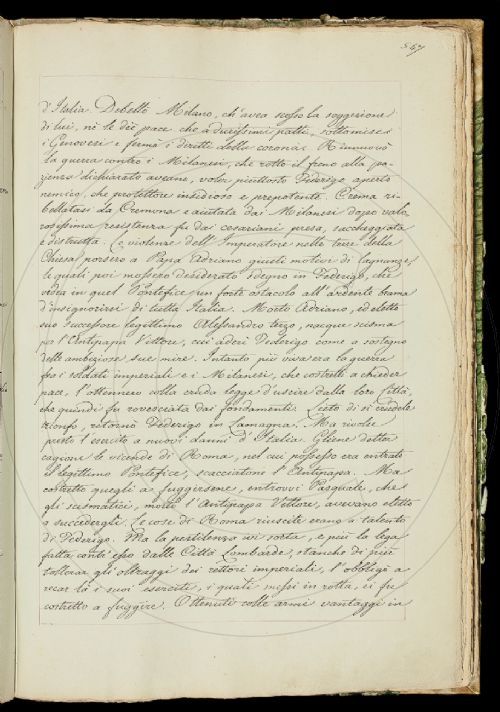 547
d'Italia. Debellò Milano, ch'avea scosso la soggezione
di lui, nè le diè pace che a durissimi patti, sottomise
i Genovesi e fermò i diritti della corona. Rinnuovò
la guerra contro i Milanesi, che rotto il freno alla pa-
zienza dichiarato aveano, voler piuttosto Federigo aperto
nemico, che protettore insidioso e prepotente. Crema ri-
bellatasi da Cremona e aiutata dai Milanesi dopo valo-
rosissima resistenza fu dai cesariani presa, saccheggiata
e distrutta. Le violenze dell'Imperatore nelle terre della
Chiesa porsero a Papa Adriano giusti motivi di lagnanze,
le quali poi mossero desiderato sdegno in Federigo, che
vedea in quel Pontefice un forte ostacolo all'ardente brama
d'insignorirsi di tutta Italia. Morto Adriano, ed eletto
suo successore legittimo Alessandro terzo, nacque scisma
per l'Antipapa Vittore, cui aderì Federigo come a sostegno
delle ambiziose sue mire. Intanto più viva era la guerra
fra i soldati imperiali e i Milanesi, che costretti a chieder
pace, l'ottennero colla cruda legge d'uscire dalla loro Città,
che quindi fu rovesciata dai fondamenti. Lieto di sì crudele
trionfo, ritornò Federigo in Lamagna. Ma rivolse
presto l'esercito a nuovi danni d'Italia. Gliene detter
cagione le vicende di Roma, nel cui possesso era entrato
il legittimo Pontefice, scacciatone l'Antipapa. Ma
costretto quegli a fuggirsene, entrovvi Pasquale, che
gli scismatici, morto l'Antipapa Vittore, avevano eletto
a succedergli. Le cose di Roma riuscite erano a talento
di Federigo. Ma la pestilenza ivi sorta, e più la lega
fatta contr'esso dalle Città Lombarde, stanche di più
tollerar gli oltraggi dei rettori imperiali, l'obbligò a
recar là i suoi eserciti, i quali messi in rotta, ei fu
costretto a fuggire. Ottenuti colle armi vantaggi in